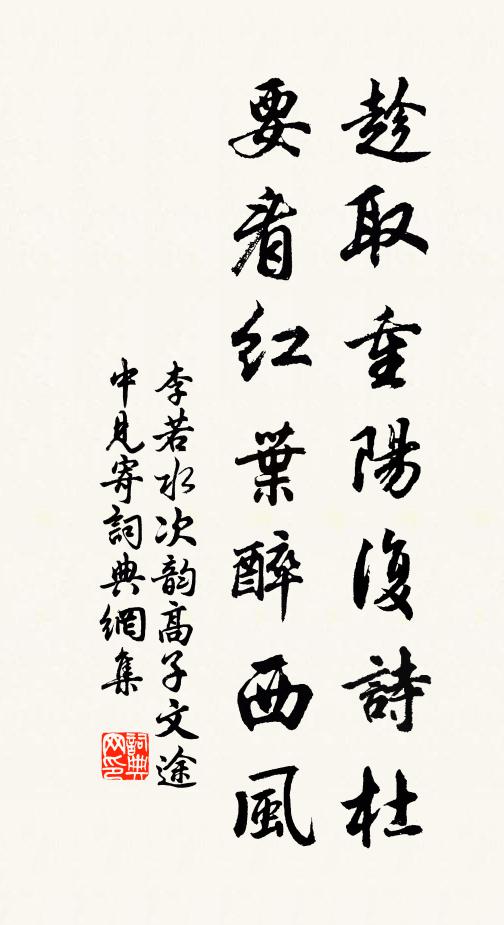 趁取重陽復詩社
要看紅葉醉西風
李若水次韵高子文途
中見寄詞典網集
詞典网印